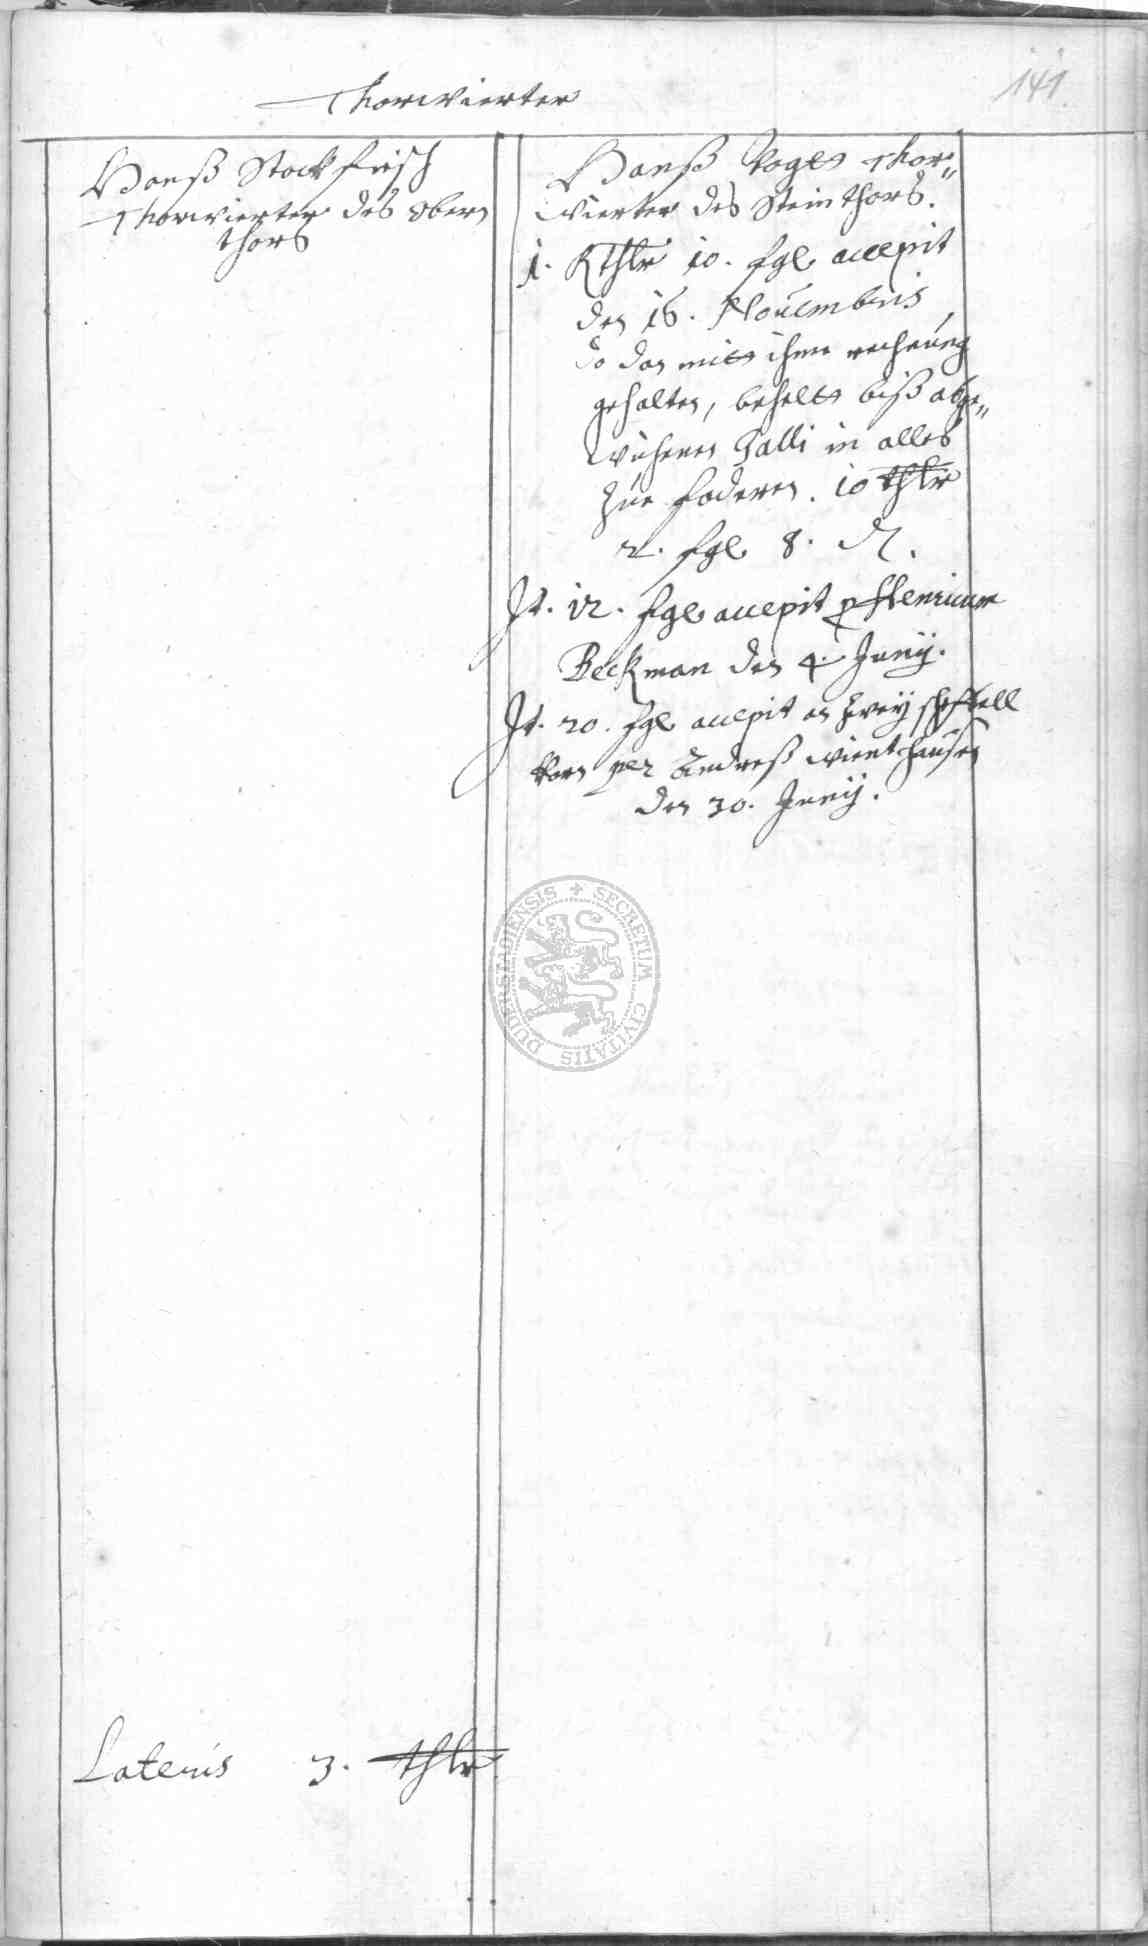 Thorwierter
141
Hanß Stockfisch
Thorwierter des obern
thors
Hanß Voges Thor„
wierter des Steinthors.
1. Rthlr 10. fgl accepit
den 16. Nouembris,
do dan mitt ihme rechnung
gehalten, behelt biß abge„
wichenen Galli in alles
zue foderen. 10 thlr
2. fgl 8. ₰.
It. 12. fgl accepit p Henricum
Beckman den 4. Junij.
It. 20. fgl accepit an zweÿ scheffell
korn per Andreß Wienthausen
den 30. Junij.
DUDERSTADIENSIS + SECRETUM CIVITATIS
Lateris 3. thlr